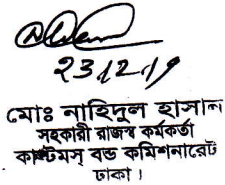 23/12/19
মোঃ নাহিদুল হাসান
সহকারী রাজস্ব কর্মকর্তা
কাস্টমস্ বন্ড কমিশনারেট
ঢাকা।